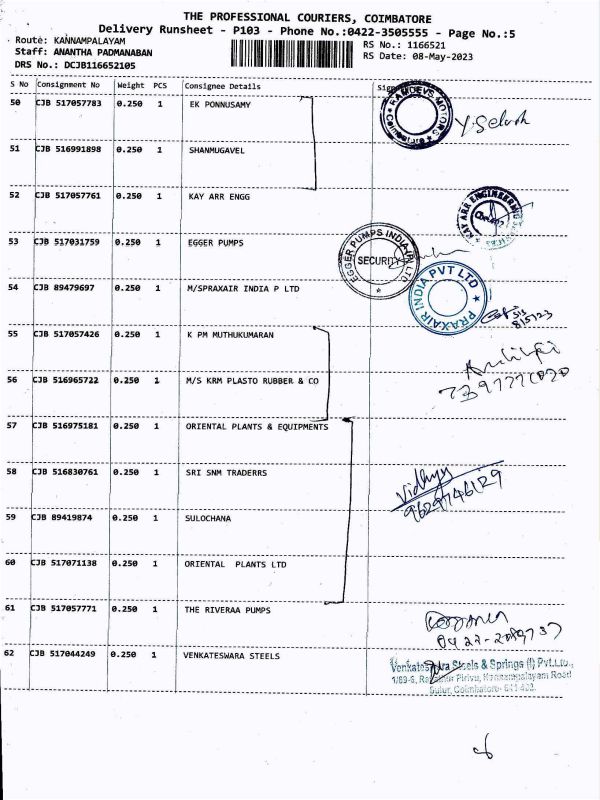 THE PROFESSIONAL COURIERS, COIMBATORE
Delivery Runsheet - P103 - Phone No.:0422-3505555 - Page No.:5
Route: KANNAMPALAYAM
RS No.: 1166521
Staff: ANANTHA PADMANABAN
RS Date: 08-May-2023
DRS No.: DCJB116652105
S No Consignment No Weight PCS Consignee Details
50 CJB 517057783 0.250 1 EK PONNUSAMY
RAMDEVS MOTORS
51 CJB 516991898 0.250 1 SHANMUGAVEL
52 CJB 517057761 0.250 1 KAY ARR ENGG
KAY ARR ENGINEERING
53 CJB 517031759 0.250 1 EGGER PUMPS
EGGER PUMPS INDIA P LTD
SECURITY
54 CJB 89479697 0.250 1 M/SPRAXAIR INDIA P LTD
PRAXAIR INDIA PVT LTD
8/5/23
55 CJB 517057426 0.250 1 K PM MUTHUKUMARAN
56 CJB 516965722 0.250 1 M/S KRM PLASTO RUBBER & CO
57 CJB 516975181 0.250 1 ORIENTAL PLANTS & EQUIPMENTS
58 CJB 516830761 0.250 1 SRI SNM TRADERRS
Vidhya
9629746129
59 CJB 89419874 0.250 1 SULOCHANA
60 CJB 517071138 0.250 1 ORIENTAL PLANTS LTD
61 CJB 517057771 0.250 1 THE RIVERAA PUMPS
62 CJB 517044249 0.250 1 VENKATESWARA STEELS
Venkateswara Steels & Springs (I) Pvt.Ltd.,
Kannampalayam Road
Sulur, Coimbatore